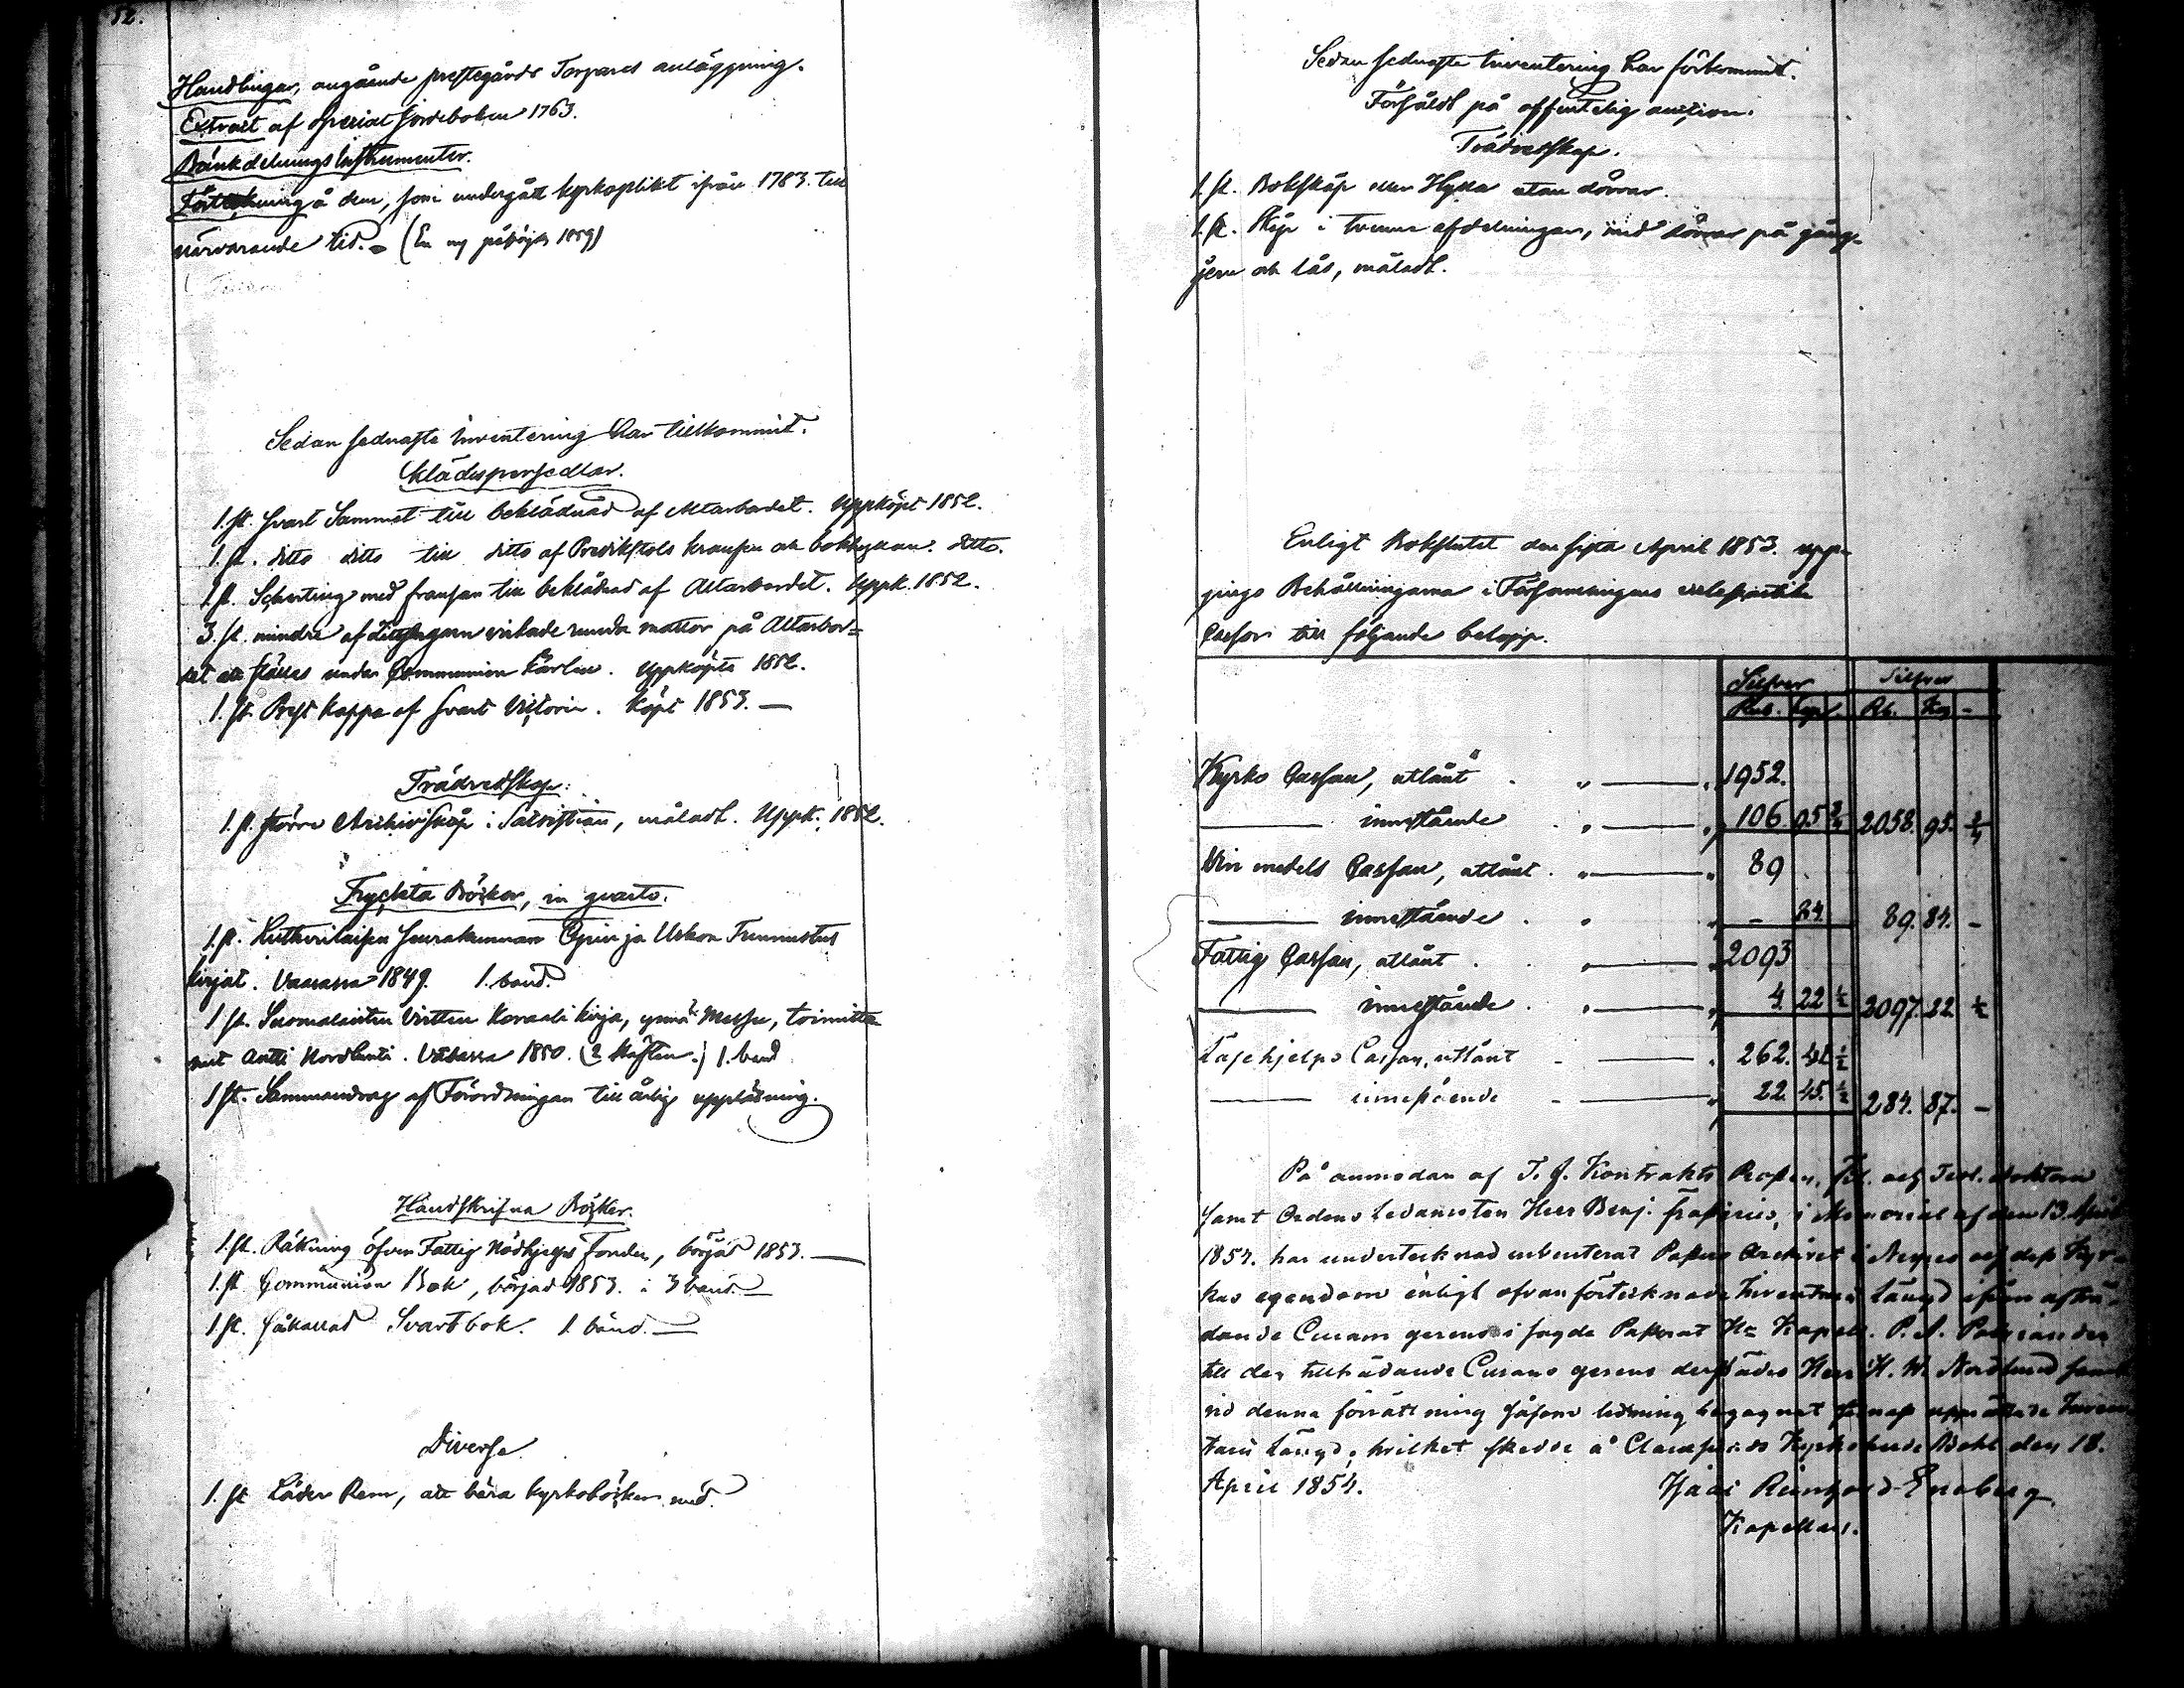 52.
Handlingar, angående prestegårds Torpares anläggning.
Extract af Special Jordeboken 1763.
Bänkdelnings Instrumenter.
Förtekning å dem, som undergått kyrkoplikt ifrån 1783. till
närvarande tid. (En ny påbörjas 1859)
Sedan sednaste Inventering har tillkommit.
Klädespersedlar.
1. st. svart Sammet till beklädnad af Altarbordet. Uppköpt 1852.
1. st. ditto ditto till ditto af Predikstols kransen och bokhyllan. ditto.
1. st. Scherting med fransar till beklädnad af Altarbordet. Uppk. 1852.
3. st. mindre af virkade runda mattor på Altarbor=
det att ställas under Communion kärlen. Uppköpte 1852.
1. st. Prest kappa af svart Victoria. Köpt 1853. —
Trädredskap.
1. st. större Archivskåp i Sacristian, måladt. Uppk. 1852.
Tryckta Böcker, in quarto.
1. st. Lutherilaisen Seurakunnan Opin ja Uskon Tunnustus
kirjat. Vaasassa 1849. 1. band.
1 st. Suomalaisten Virtten Koraali kirja, ynnä Messu, toimitta
nut Antti Nordlunti. Vaasassa 1850. (2 häften.) 1. band
1 st. Sammandrag af Förordningar till årlig uppläsning.
Handskrifna Böcker.
1. st. Räkning öfver Fattig Nödhjelps Fonden, börjad 1853. —
1. st Communion Bok, börjad 1853. i 3 band. —
1. st. såkallad Svartbok. 1. band. —
Diverse.
1. st Läder Rem, att bära kyrkoböcker med.
Sedan sednaste Inventering har förkommit.
Försåldt på offentelig auction.
Trädredskap.
1. st. Bokskåp eller Hylla utan dörrar.
1. st. Skåp i tvenne afdelningar, med dörrar på gång=
jern och lås, måladt.
Enligt Bokslutet den sista April 1853. upp=
gingo Behållningarna i Församlingens
Cassor till följande belopp.
Silfver Silfver
Rub. Kop. Rb. Kop -
Kyrko Cassan, utlånt . „ — „ 1952.
— innestående „ — „ 106 95 3/4 2058. 95. 3/4
Vin medels Cassan, utlånt . „ — „ 89
— innestående . „ „ - 84 89. 84. -
Fattig Cassan, utlånt . „ — „ 2093
— innestående . „ — „ 4. 22 1/2 2097. 22 1/2
Cassan, utlånt - — „ 262. 41 1/2
— innestående - — „ 22. 45. 1/2 284. 87. -
På anmodan af T. f. Kontrakts Prosten, Fil. och Teol. doktorn
samt Ordens Ledamoten Herr Benj. Frosterus, i Memorial af den 13. April
1854. har undertecknad inventerat Pastors Archivet i och dess Kyr=
kas egendom enligt ofvan förtecknade Inventarii Längd ifrån afträ=
dande Curam gerens i sagde Pastorat Hr Kapell. P. A.
till den tillträdande Curam gerens derstädes Herr H. W. Nordlund samt
vid denna förrättning såsom ledning begagnat
tarii Längd; hvilket skedde å Kyrkoherde Bohl den 18.
April 1854.
Kapellan.